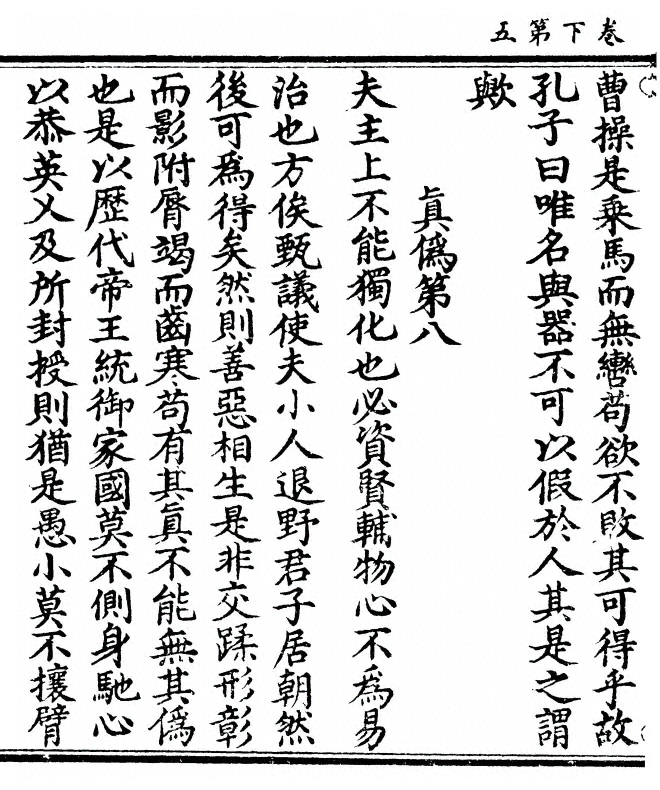 卷下第五
曹操是乘馬而無轡苟欲不敗其可得乎故
孔子曰唯名與器不可以假於人其是之謂
歟
眞僞第八
夫主上不能獨化也必資賢輔物心不爲易
治也方俟甄議使夫小人退野君子居朝然
後可爲得矣然則善惡相生是非交蹂形彰
而影附脣竭而齒寒苟有其眞不能無其僞
也是以歷代帝王統御家國莫不側身馳心
以恭英乂及所封授則猶是愚小莫不攘臂